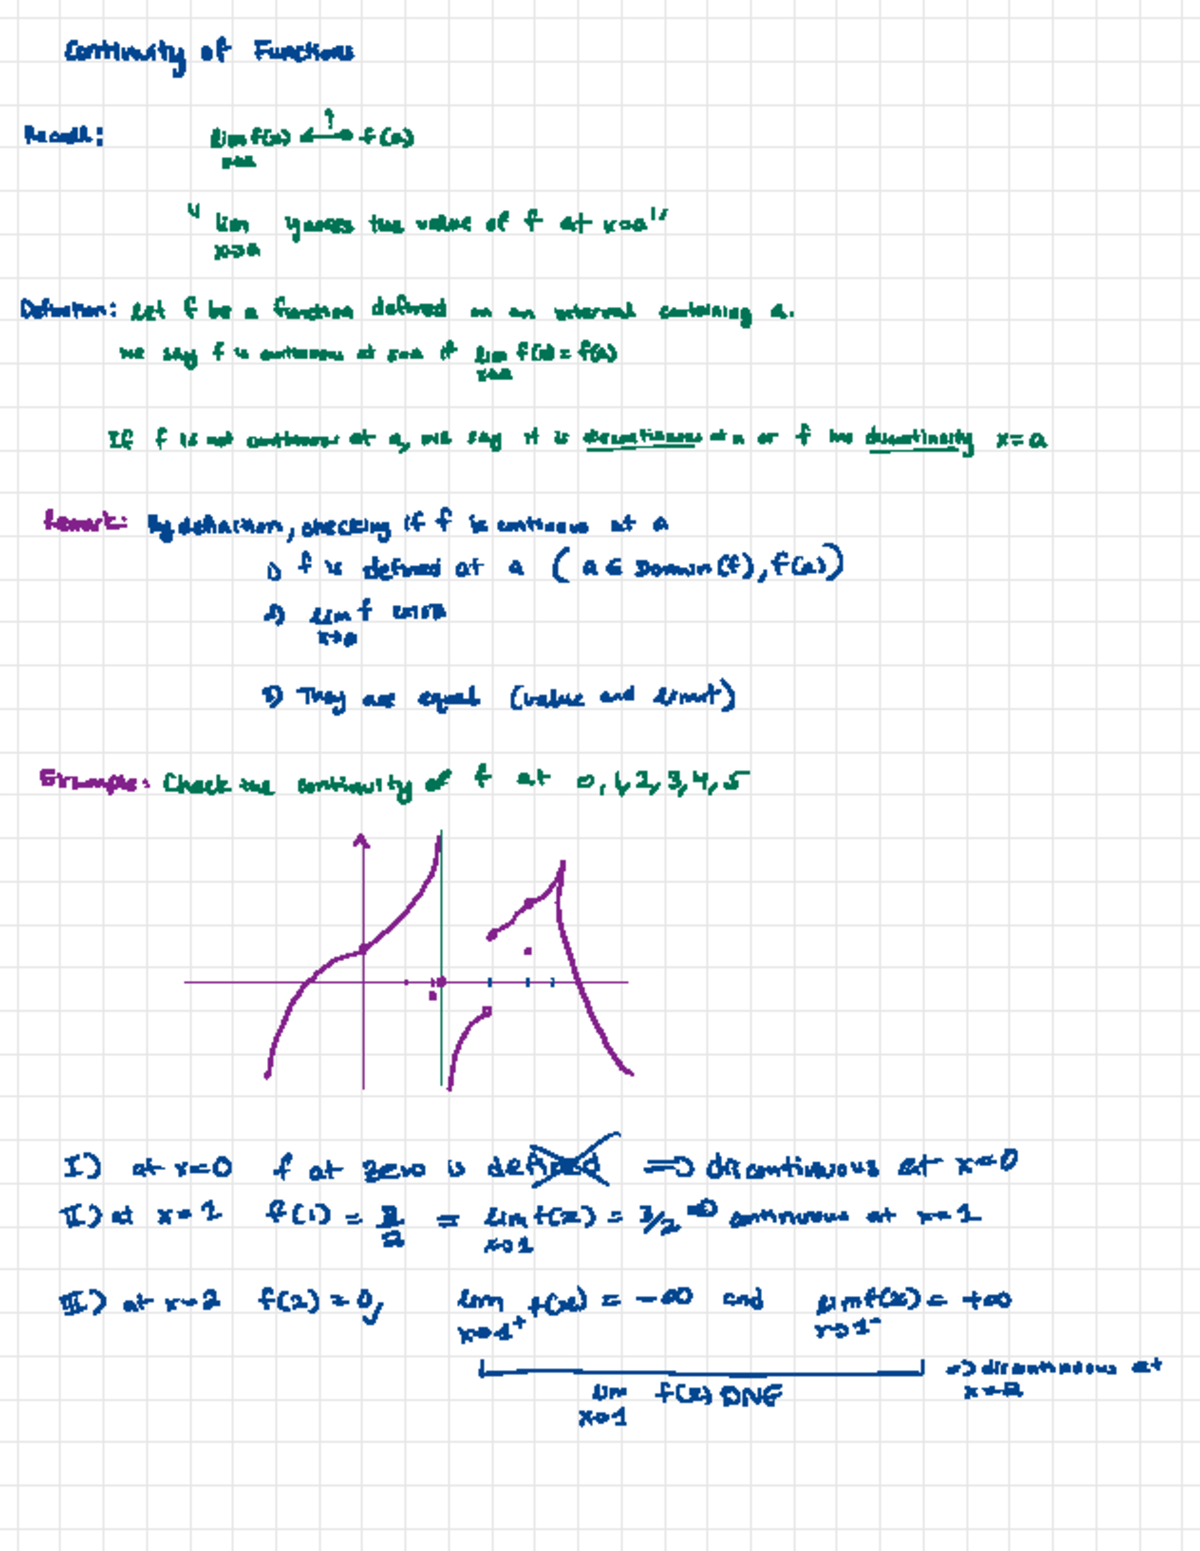 Continuity of Functions
Recall: lim f(x) ⟷ f(a)
x→a
?
" lim guesses the value of f at x=a"
x→a
Definition: Let f be a function defined on an interval containing a.
we say f is continuous at x=a if lim f(x) = f(a)
x→a
If f is not continuous at a, we say it is discontinuous at a or f has discontinuity x=a
Remark: By definition, checking if f is continuous at a
1) f is defined at a (a ∈ Domain(f), f(a))
2) lim f exists
x→a
3) They are equal (value and limit)
Example: Check the continuity of f at 0, 1, 2, 3, 4, 5
I) at x=0 f at zero is defined ⟹ discontinuous at x=0
II) at x=1 f(1) = 3/2 = lim f(x) = 3/2 ⟹ continuous at x=1
x→1
III) at x=2 f(2) = 0, lim f(x) = -∞ and lim f(x) = +∞
x→1⁺ x→1⁻
lim f(x) DNE ⟹ discontinuous at
x→1 x=2